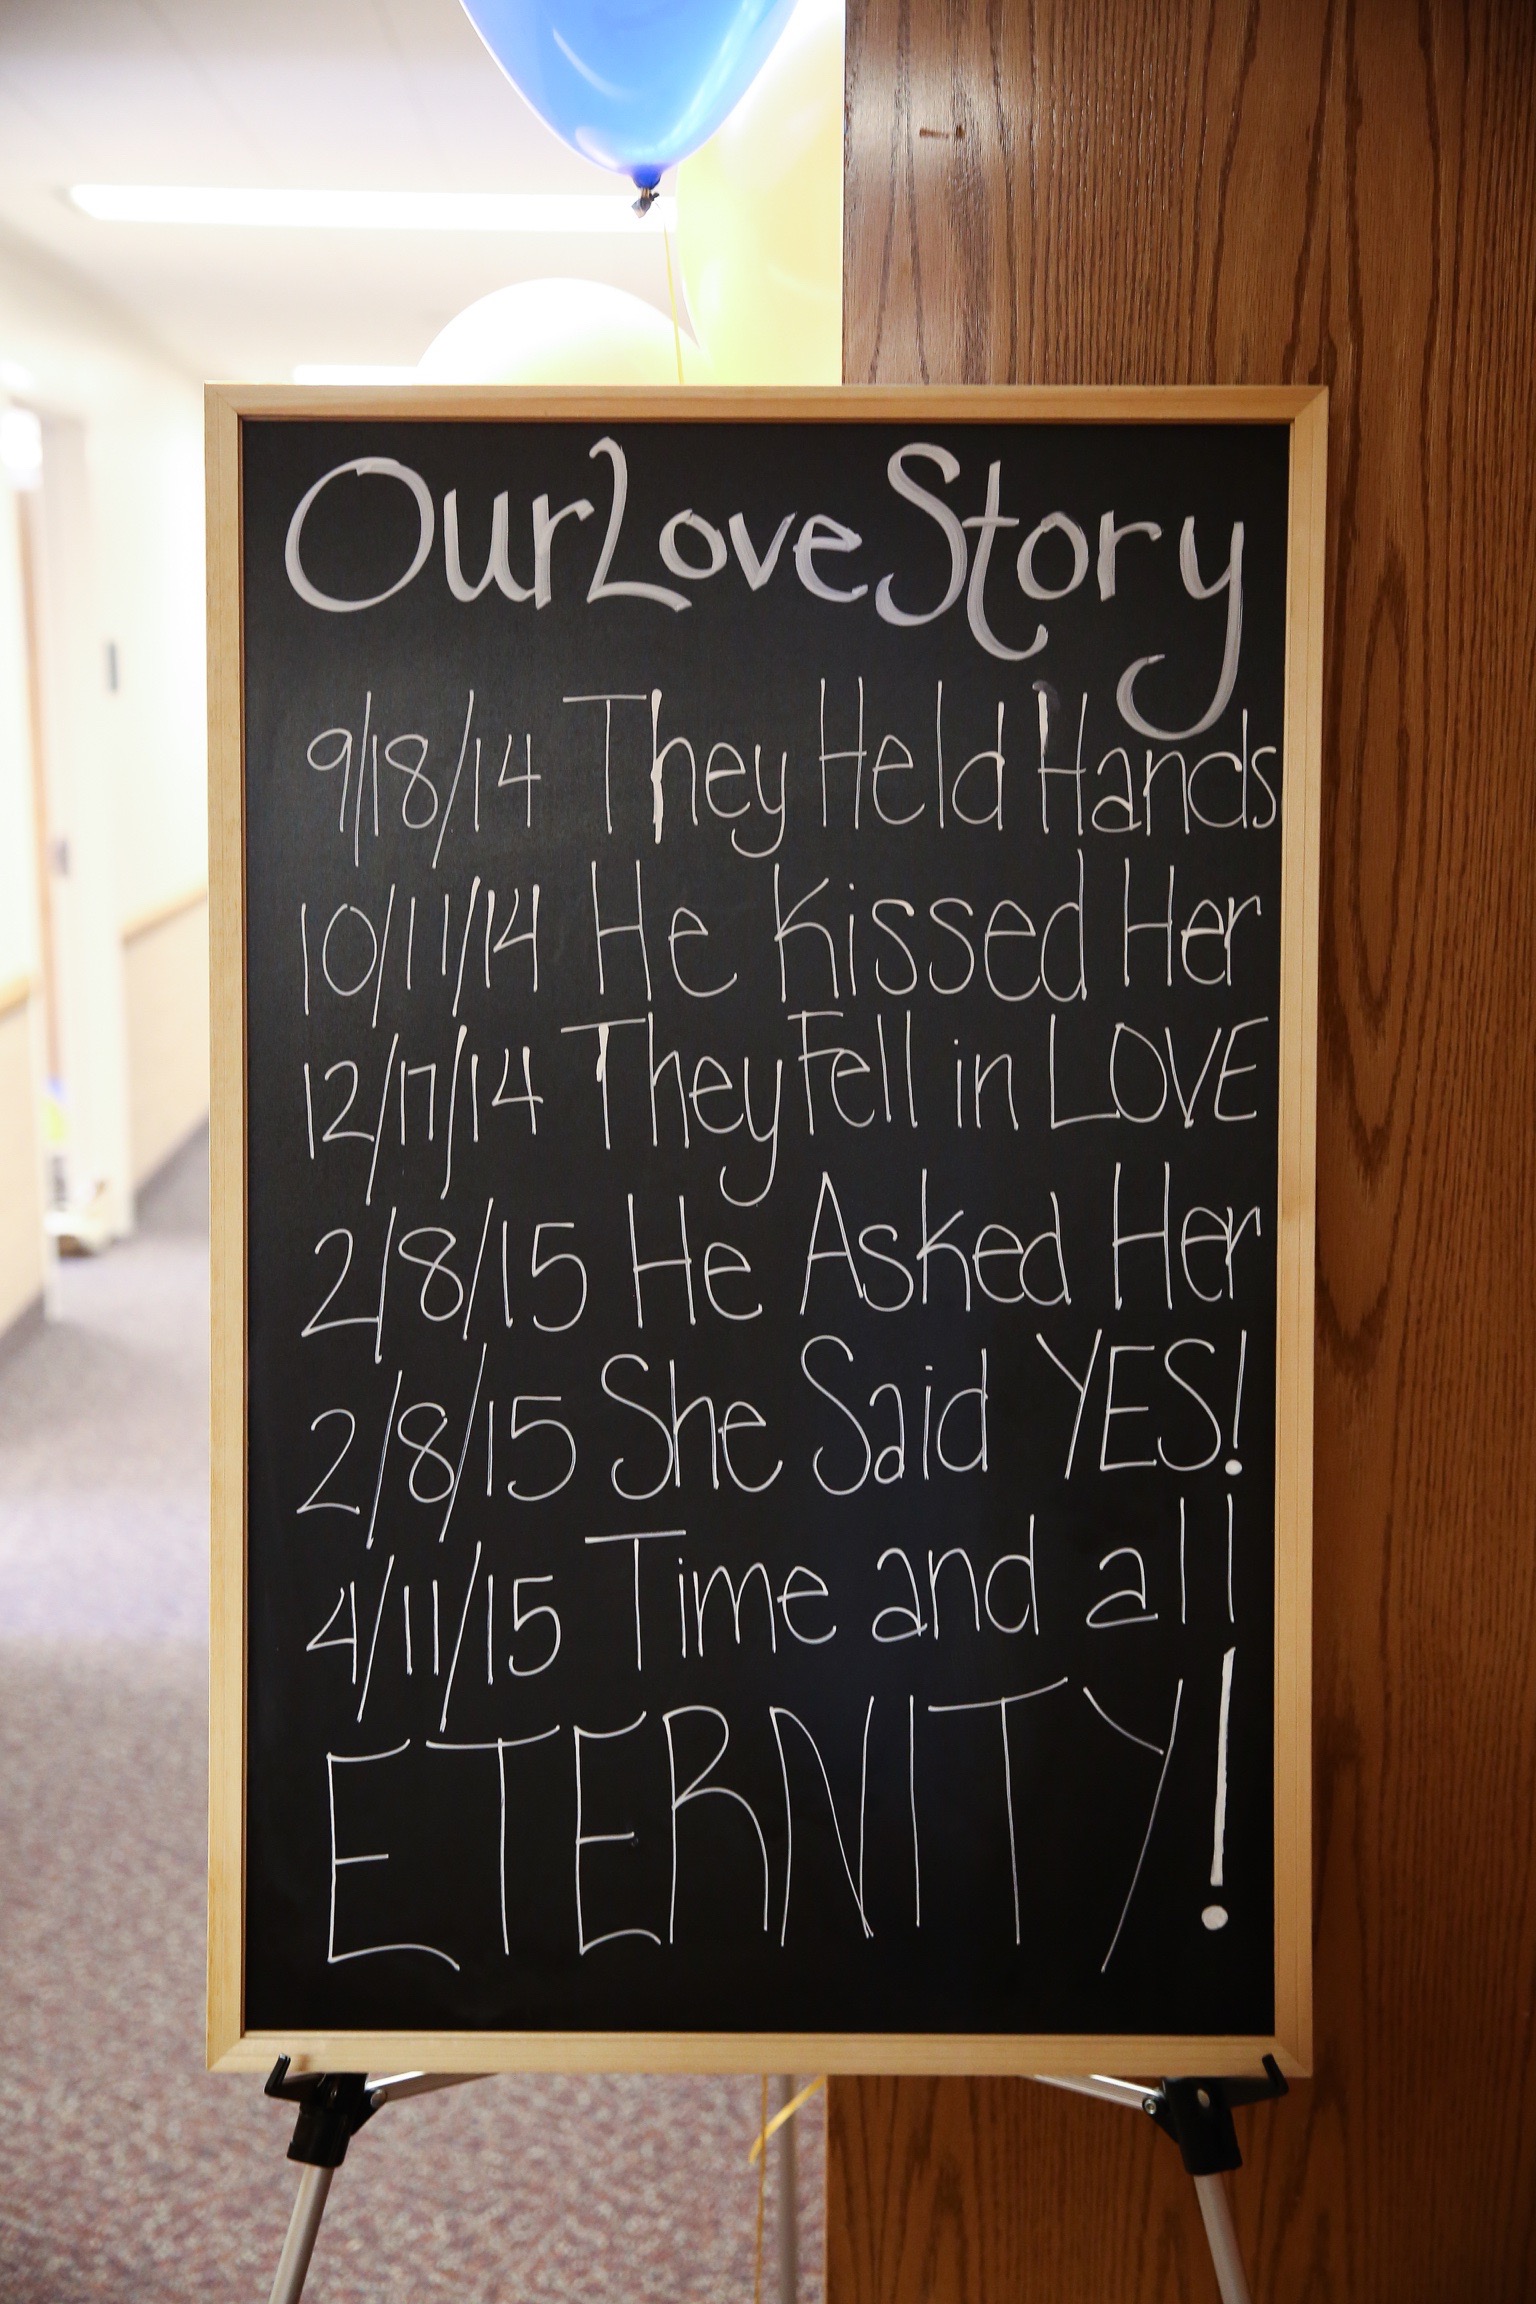 Our Love Story
9/18/14 They Held Hands
10/11/14 He Kissed Her
12/17/14 They Fell in LOVE
2/8/15 He Asked Her
2/8/15 She Said YES!
4/11/15 Time and all
ETERNITY!